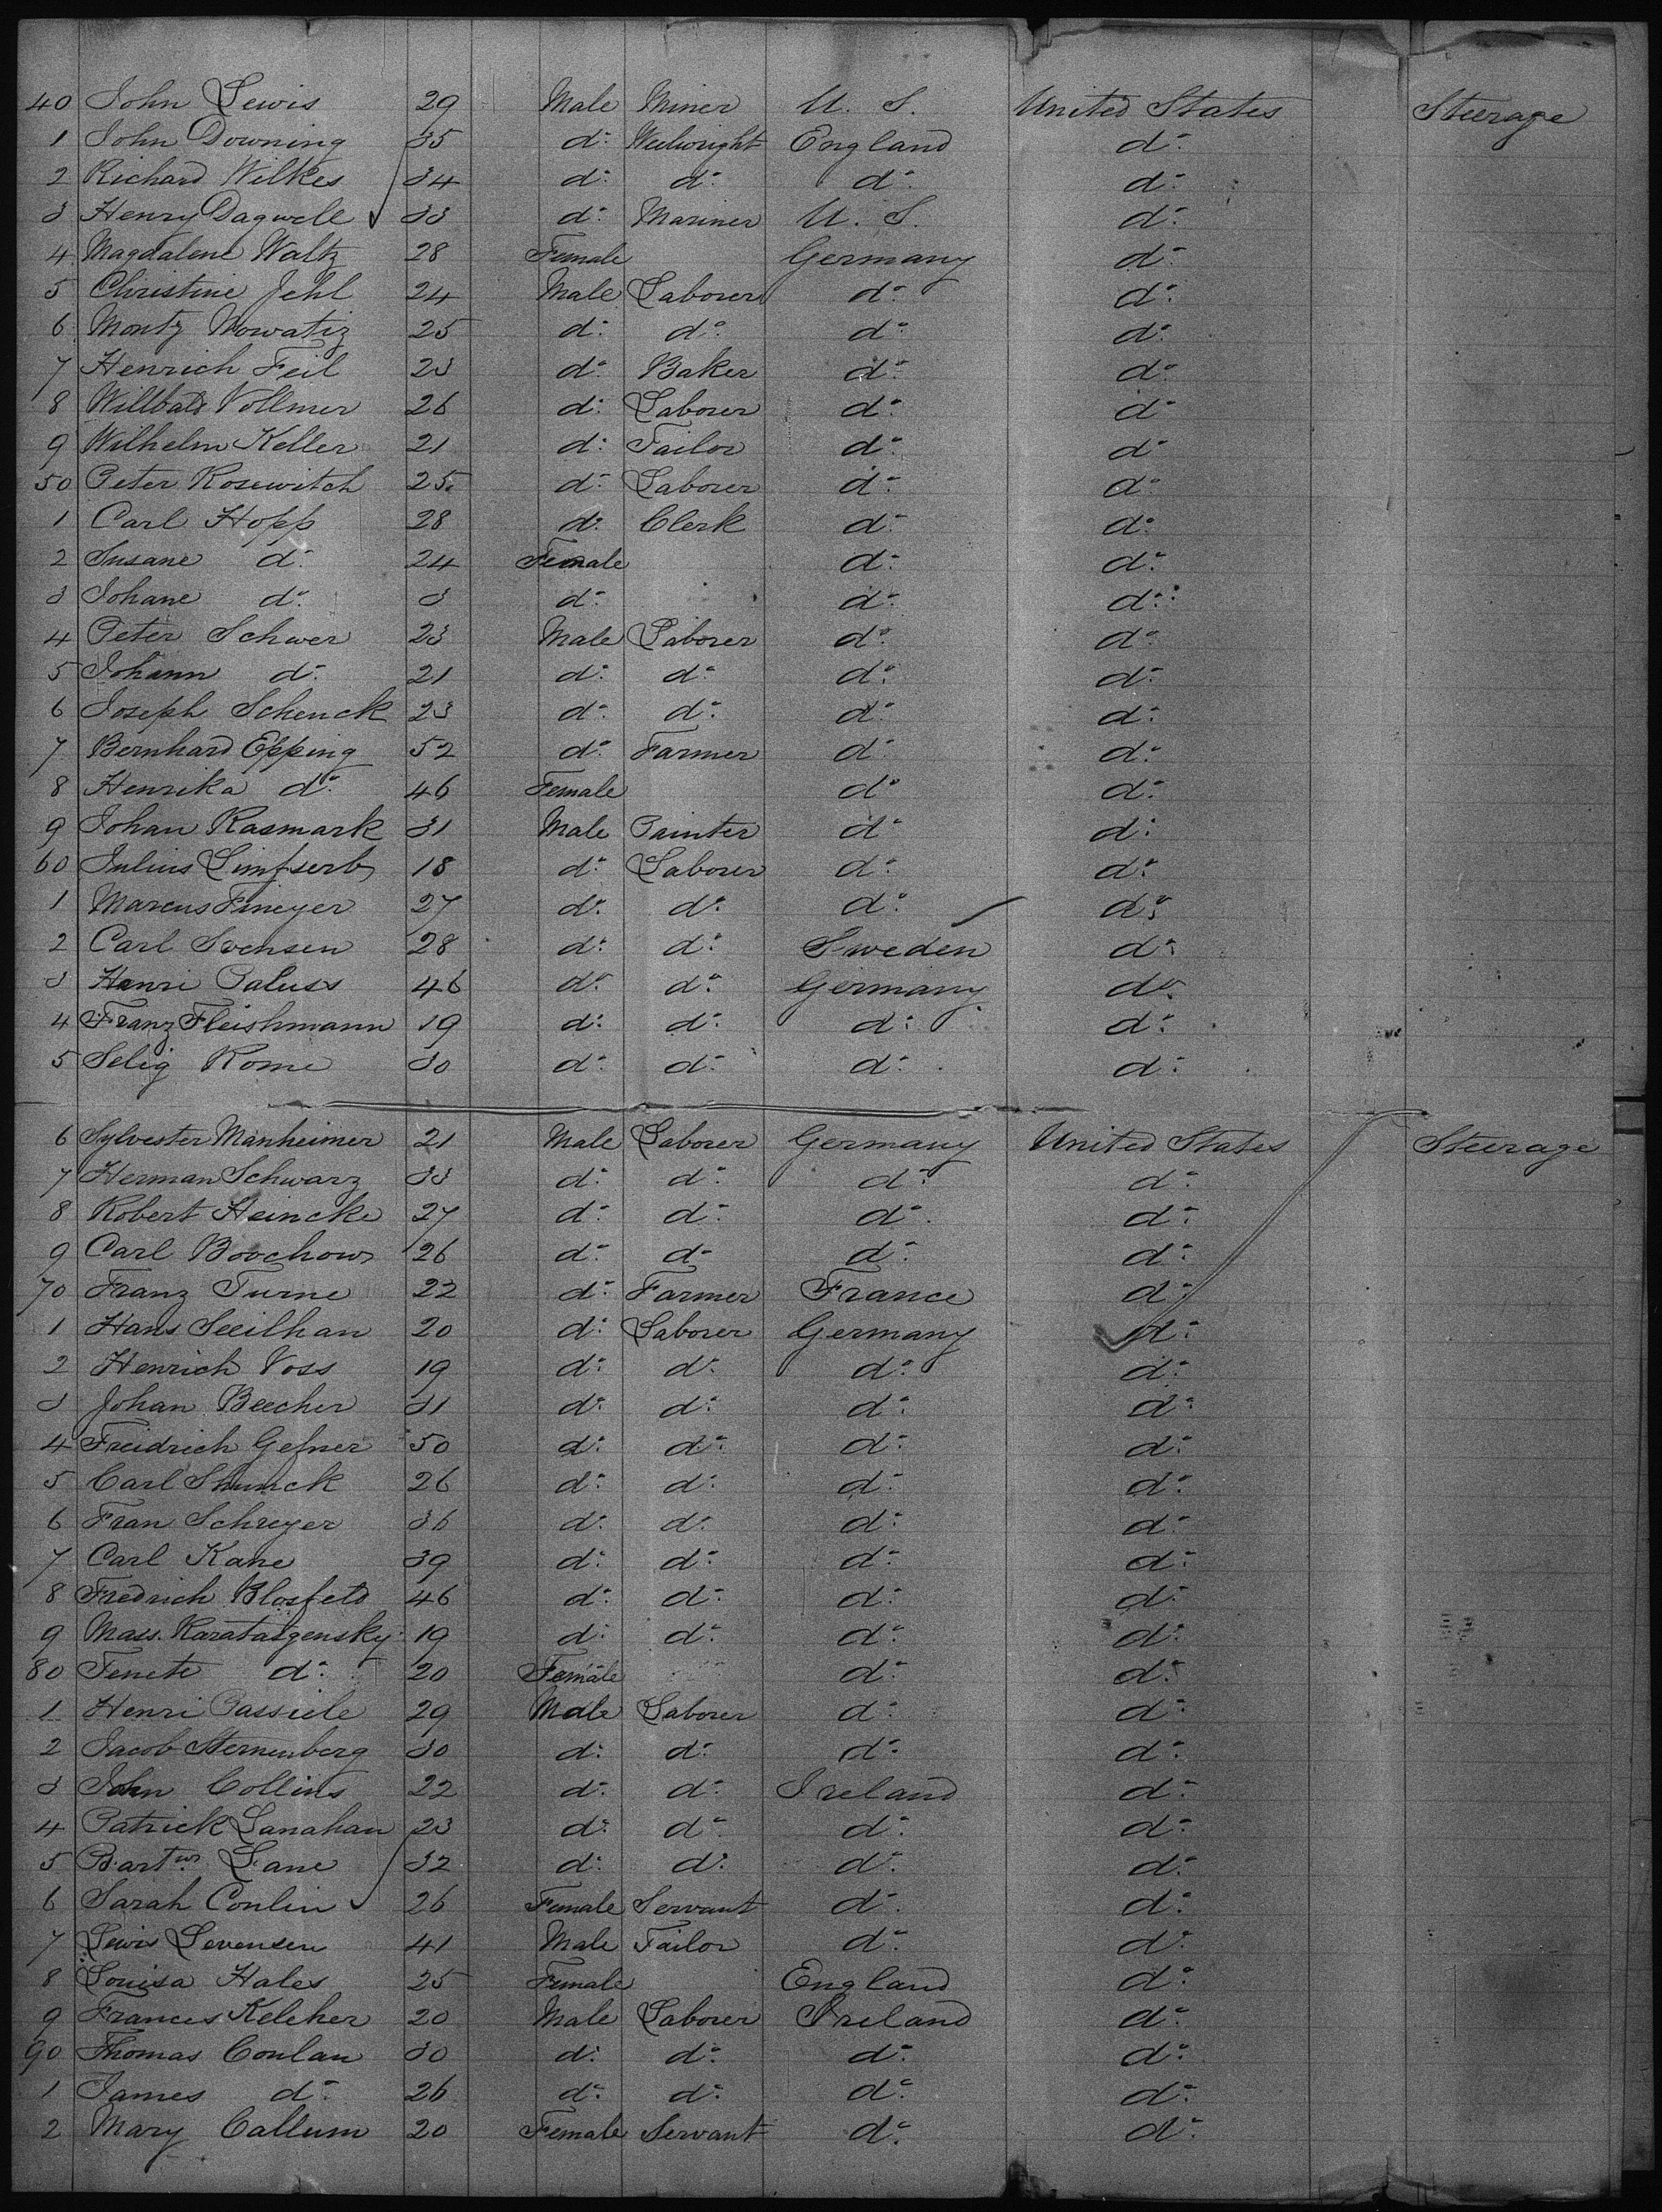 40 John Lewis 29 Male Miner U. S. United States Steerage
1 John Downing 35 d: Weelwright England d:
2 Richard Wilkes 34 d: d: d: d:
3 Henry Dagwell 33 d: Mariner U. S. d:
4 Magdalene Waltz 28 Female Germany d:
5 Christine Jehl 24 Male Laborer d: d:
6 Montz Nowatiz 25 d: d: d: d:
7 Henrich Feil 23 d: Baker d: d:
8 Willbald Vollmer 26 d: Laborer d: d:
9 Wilhelm Keller 21 d: Tailor d: d:
50 Peter Rosewitch 25 d: Laborer d: d:
1 Carl Hopp 28 d: Clerk d: d:
2 Susane d: 24 Female d: d:
3 Johane d: 3 d: d: d:
4 Peter Schwer 23 Male Laborer d: d:
5 Johann d: 21 d: d: d: d:
6 Joseph Schenck 23 d: d: d: d:
7 Bernhard Epping 52 d: Farmer d: d:
8 Henrika d: 46 Female d: d:
9 Johan Rasmark 31 Male Painter d: d:
60 Julius 18 d: Laborer d: d:
1 Marcus Fineyer 27 d: d: d: d:
2 Carl Svensen 28 d: d: Sweden d:
3 Henri Paluss 46 d: d: Germany d:
4 Franz Fleishmann 19 d: d: d: d:
5 Selig Rome 30 d: d: d: d:
6 Sylvester Manheimer 21 Male Laborer Germany United States Steerage
7 Herman Schwarz 33 d: d: d: d:
8 Robert Heincke 27 d: d: d: d:
9 Carl Boochow 26 d: d: d: d:
70 Franz Turne 22 d: Farmer France d:
1 Hans Seeilhan 20 d: Laborer Germany d:
2 Henrich Voss 19 d: d: d: d:
3 Johan Beecher 31 d: d: d: d:
4 Freidrich Gefner 50 d: d: d: d:
5 Carl Shunck 26 d: d: d: d:
6 Fran Schreyer 36 d: d: d: d:
7 Carl Kane 39 d: d: d: d:
8 Fredrich Blosfeld 46 d: d: d: d:
9 Mass. Karatasgensky 19 d: d: d: d:
80 Tenete d: 20 Female d: d:
1 Henri Passiele 29 Male Laborer d: d:
2 Jacob Sternenberg 30 d: d: d: d:
3 John Collins 22 d: d: Ireland d:
4 Patrick Lanahan 23 d: d: d: d:
5 Bartw Lane 32 d: d: d: d:
6 Sarah Conlin 26 Female Servant d: d:
7 Lewis Levensen 41 Male Tailor d: d:
8 Louisa Hales 25 Female England d:
9 Frances Keleher 20 Male Laborer Ireland d:
90 Thomas Conlan 30 d: d: d: d:
1 James d: 26 d: d: d: d:
2 Mary Callum 20 Female Servant d: d: